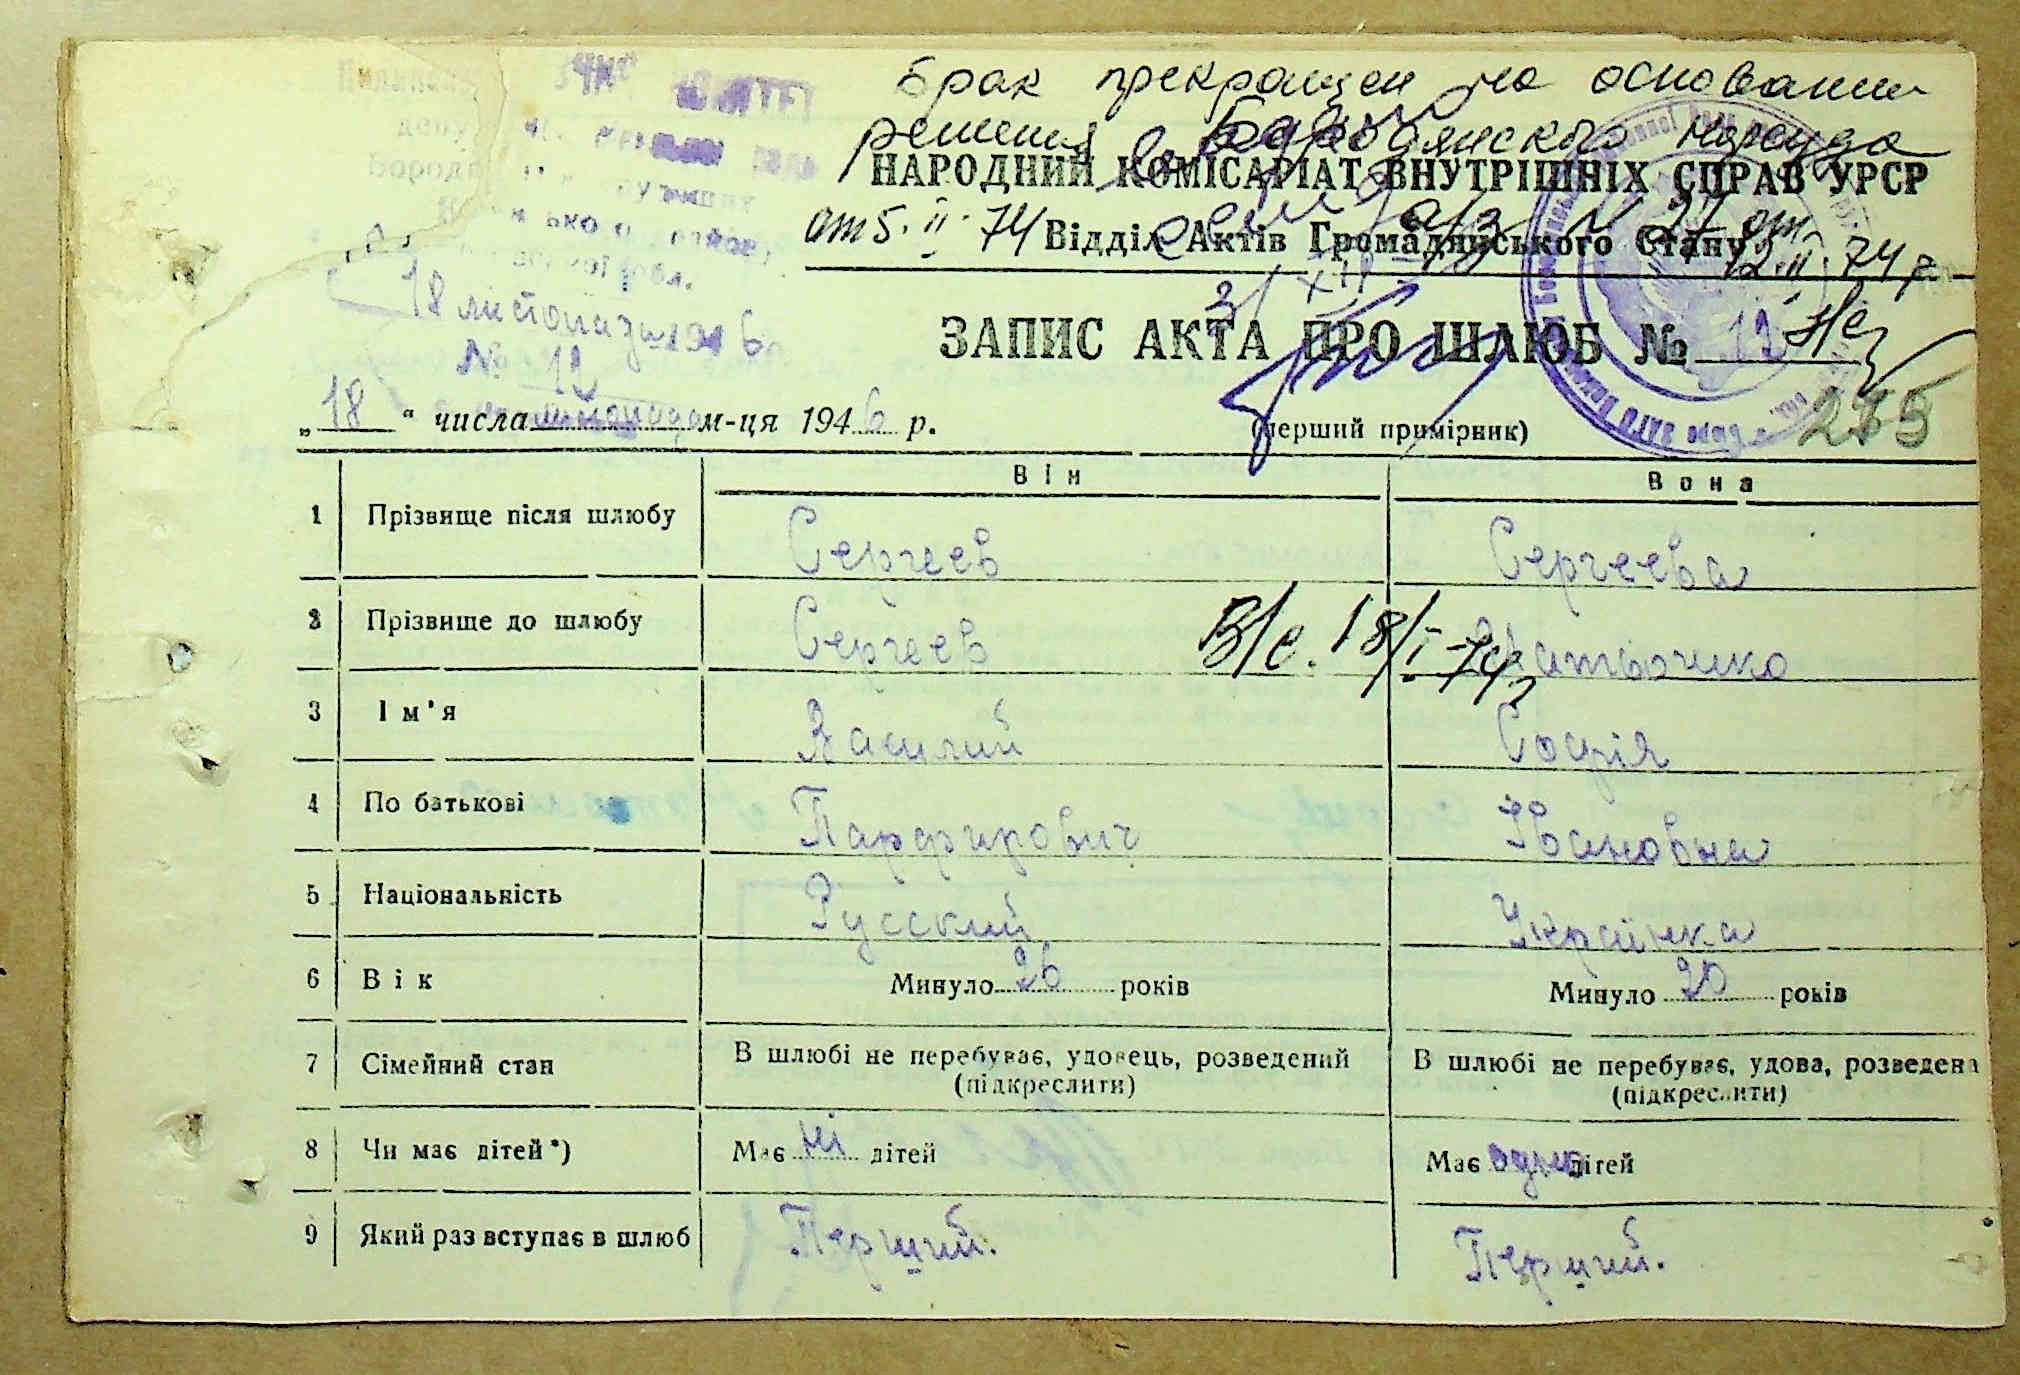 Брак прекращен на основании
решения Бородянского нарсуда
НАРОДНИЙ КОМІСАРІАТ ВНУТРІШНІХ СПРАВ УРСР
от 5.II.74 Відділ Актів Громадянського Стану
а/з № 27 от 12.II.74 р
18 листопада 1946
№ 12
ЗАПИС АКТА ПРО ШЛЮБ № 12
„18" числа листопада м-ця 1946 р.
(перший примірник)
275
Він Вона
1 Прізвище після шлюбу Сергеев Сергеева
2 Прізвище до шлюбу Сергеев
В/с. 18/I-74р
3 Ім'я Василий Софія
4 По батькові Парфирович Івановна
5 Національність Русский Українка
6 Вік Минуло 26 років Минуло 20 років
7 Сімейний стан В шлюбі не перебуває, удовець, розведений (підкреслити) В шлюбі не перебуває, удова, розведена (підкреслити)
8 Чи має дітей*) Має ні дітей Має одно дітей
9 Який раз вступає в шлюб Перший. Перший.